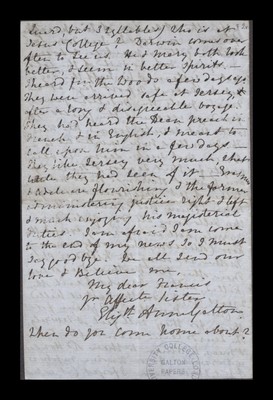 but 3 syllables) He is at
Jesus College & Darwin comes over
often to see us. He & Mary both look
better, & seem in better spirits —
I heard from the Woods a few days ago,
they were arrived safe at Jersey, &
after a long & disagreeable voyage.
They had heard the Dean preach in
French, & in English, & meant to
call upon him in a few days —
They like Jersey very much, what
little they had seen of it — Emma
& Adele are flourishing & the former
administering justice right & left
& much enjoying his magisterial
duties. I am afraid I am come
to the end of my news. So I must
say good bye. We all send our
love & Believe me,
My dear Francis
yr Affecte Sister
Elizth Anne Galton
When do you come home about?
COLLEGE
GALTON
PAPERS